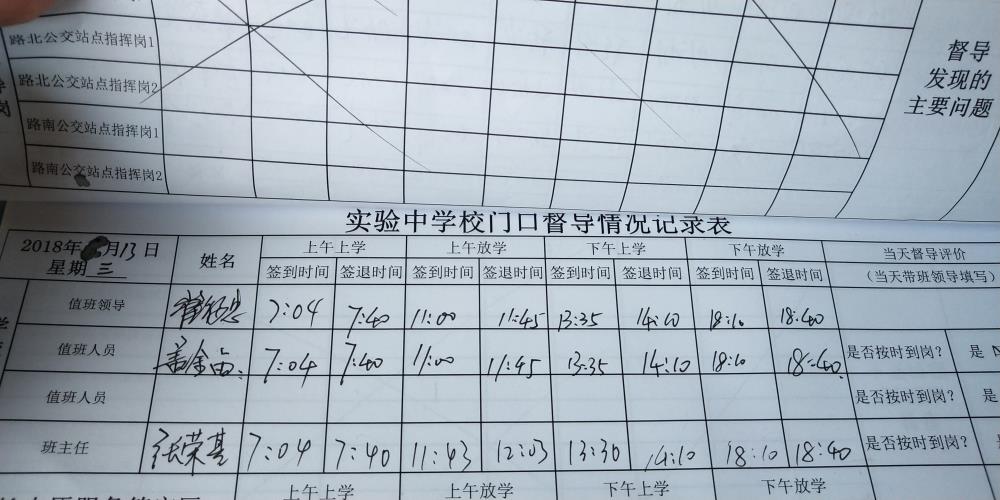 路北公交站点指挥岗1
路北公交站点指挥岗2
路南公交站点指挥岗1
路南公交站点指挥岗2
岗
督导
发现的
主要问题
实验中学校门口督导情况记录表
2018年 月13日
星期 三
姓名
上午上学 上午放学 下午上学 下午放学 当天督导评价
签到时间 签退时间 签到时间 签退时间 签到时间 签退时间 签到时间 签退时间 （当天带班领导填写）
值班领导 7:04 7:40 11:00 11:45 13:35 14:10 18:10 18:40
值班人员 7:04 7:40 11:00 11:45 13:35 14:10 18:10 18:40 是否按时到岗？ 是
值班人员 是否按时到岗？ 是
班主任 张荣基 7:04 7:40 11:43 12:03 13:30 14:10 18:10 18:40 是否按时到岗？
上午上学 上午放学 下午上学 下午放学